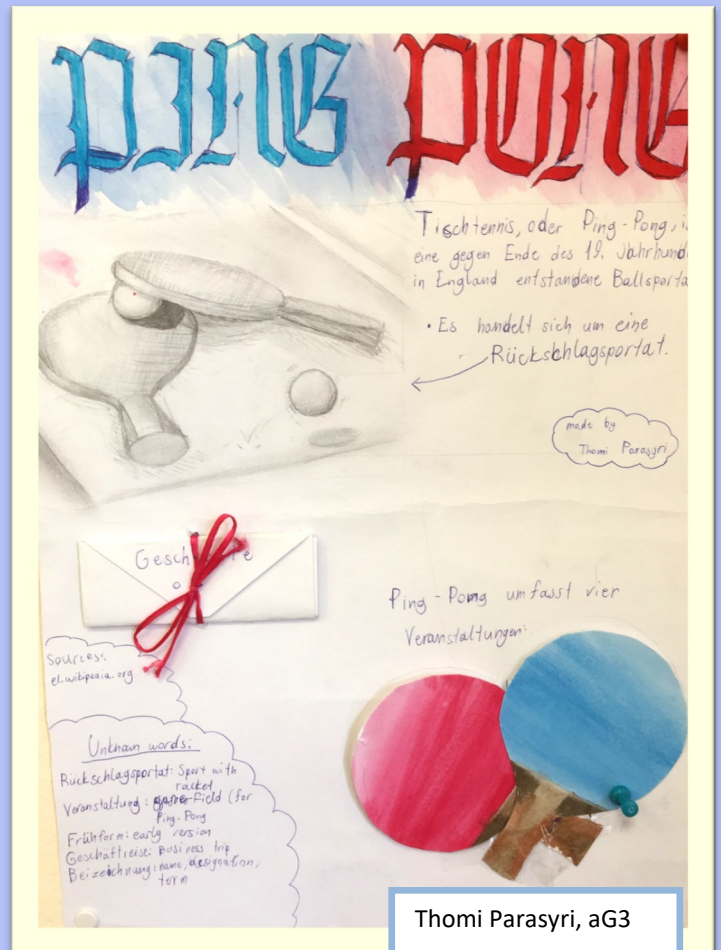 PING PONG
Tischtennis, oder Ping-Pong, i
eine gegen Ende des 19. Jahrhund
in England entstandene Ballsporta
• Es handelt sich um eine
Rückschlagsportat.
made by
Thomi Parasyri
Gesch
Ping-Pong umfasst vier
Veranstaltungen:
Sources:
el.wikipedia.org
Unknown words:
Rückschlagsportat: Sport with
racket
Veranstaltung: Field (for
Ping-Pong
Frühform: early version
Geschäftreise: Business trip
Beizeichnung: name, designation,
term
Thomi Parasyri, aG3